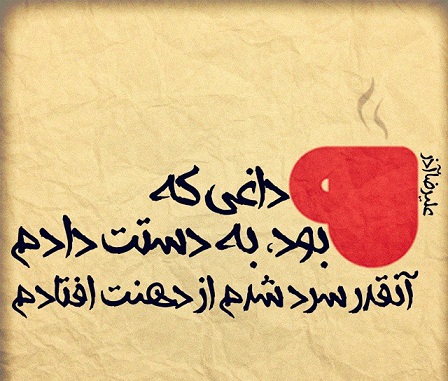 داغی که
بود، به دستت دادم
آنقدر سرد شدم از دهنت افتادم
علیرضا آذر